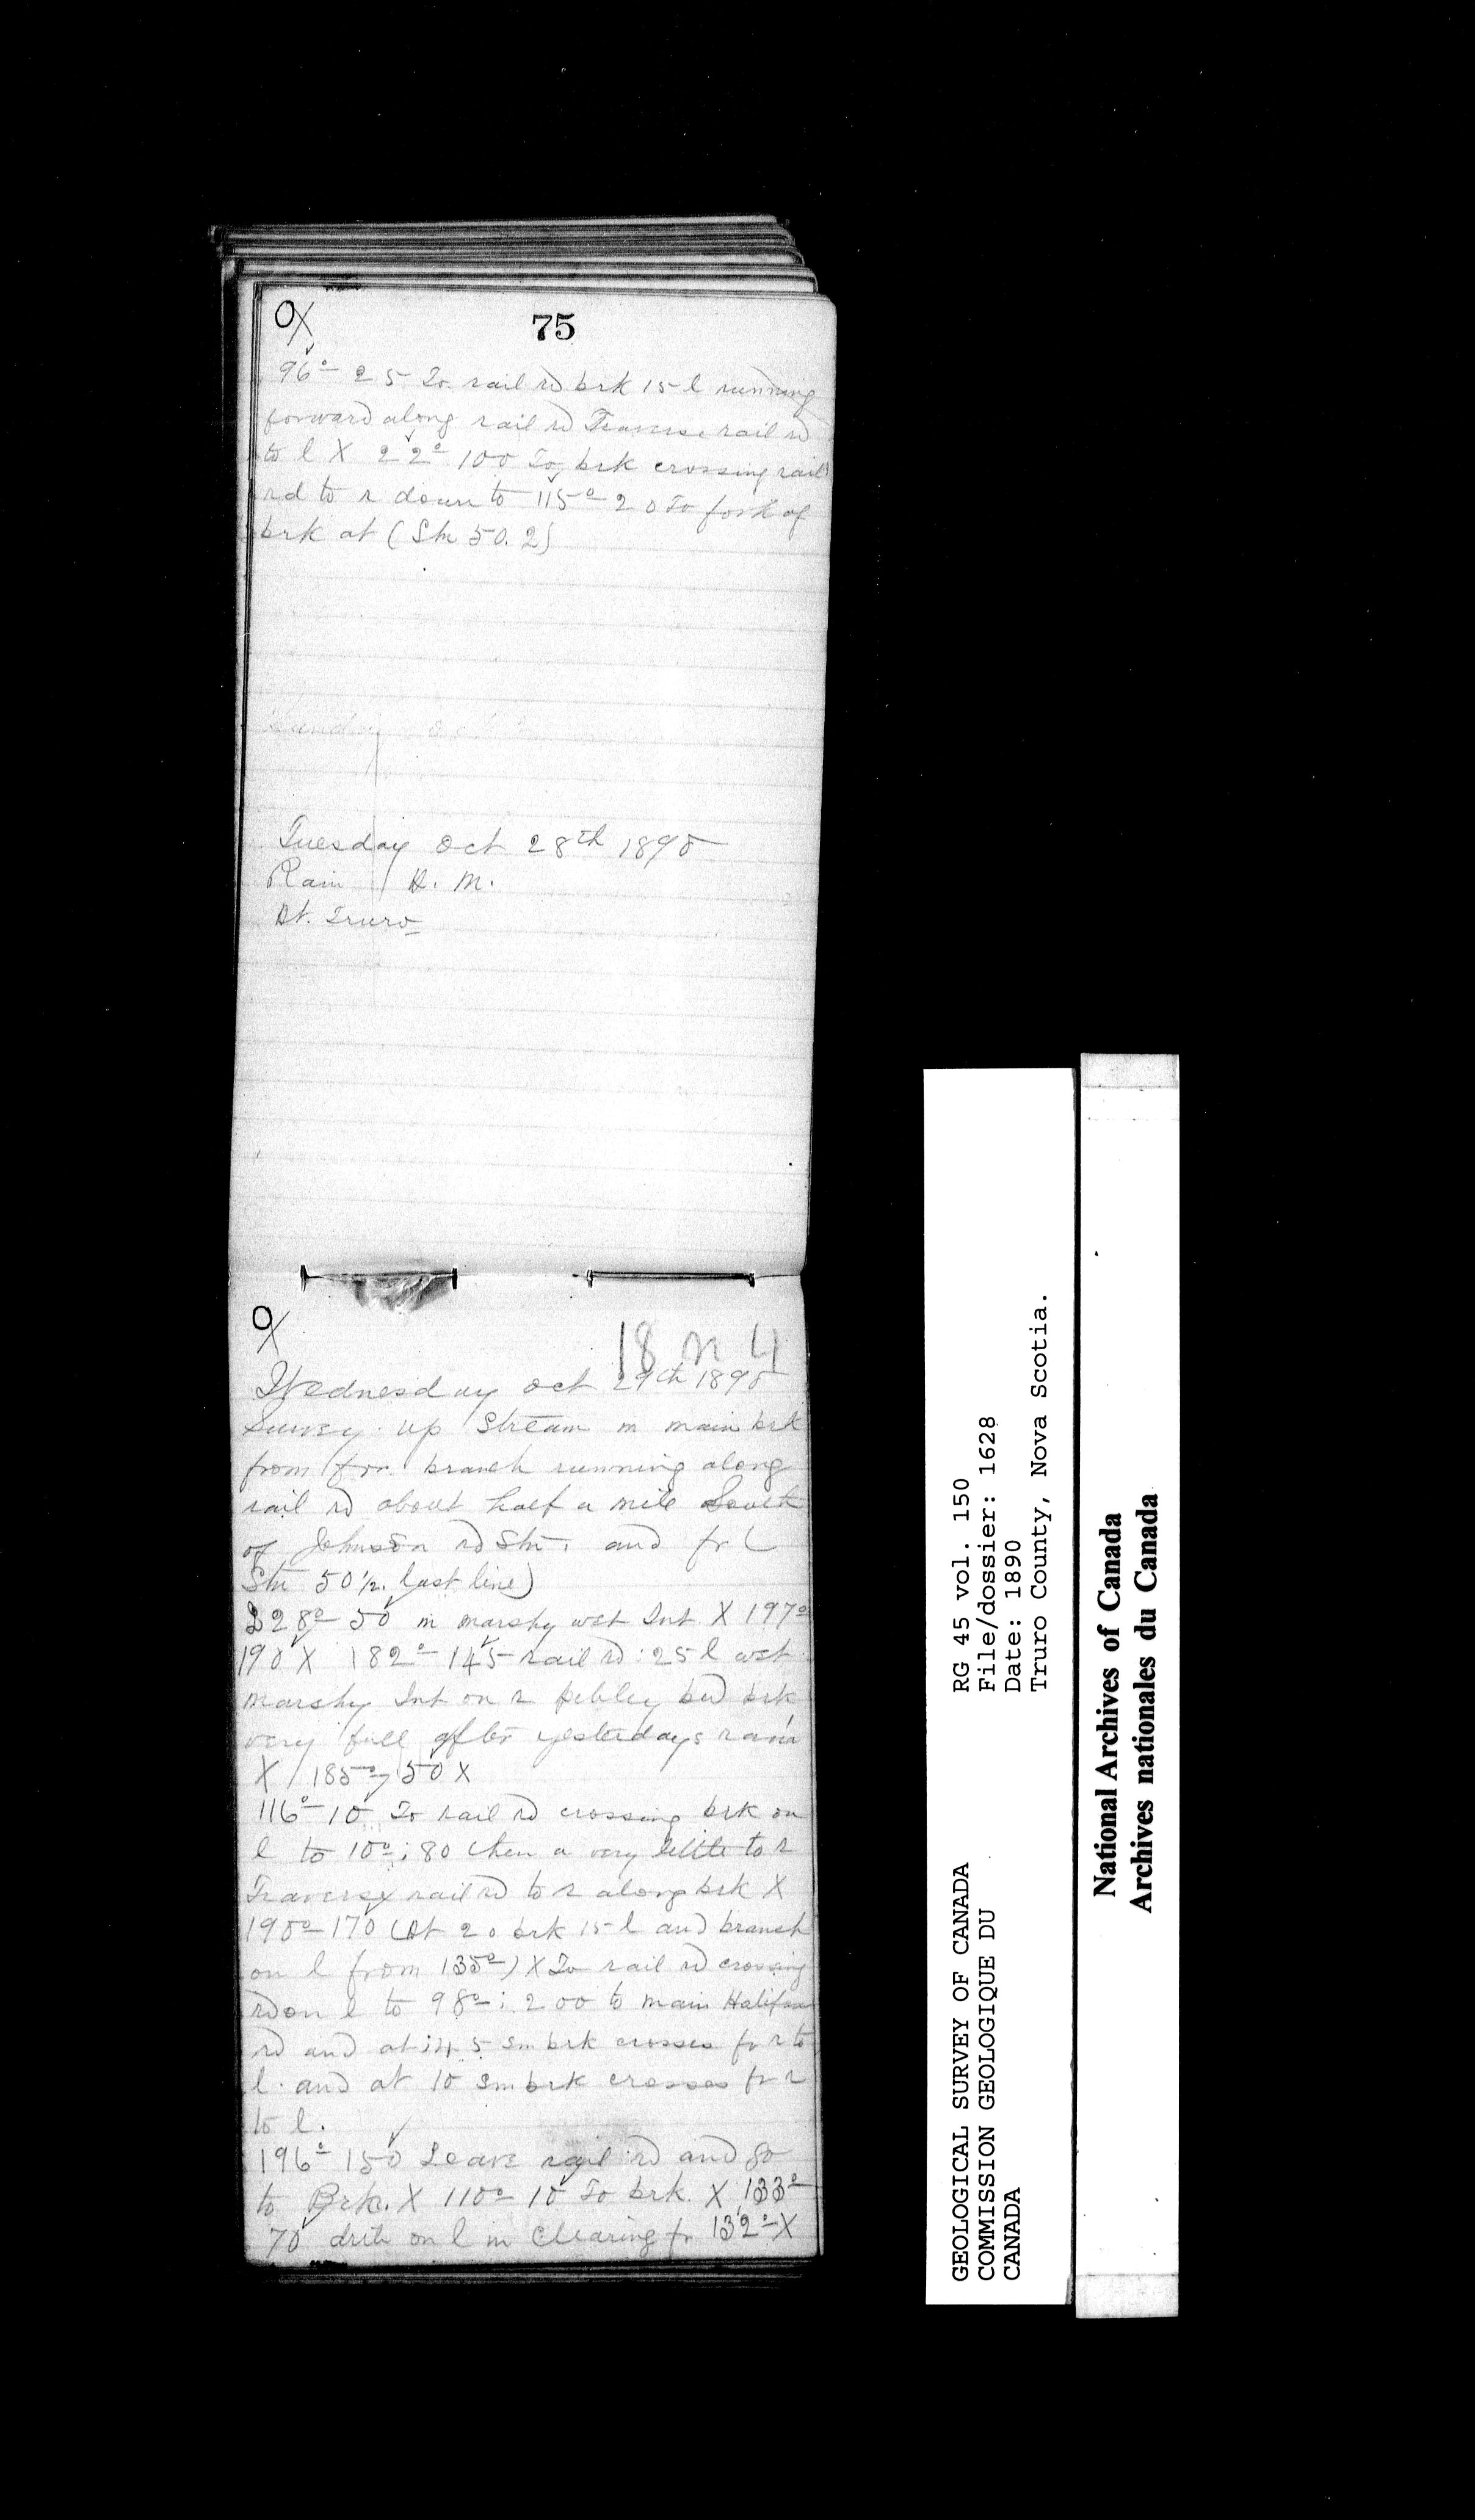 OX
75
96° 25 To rail rd brk 15 l running
forward along rail rd Traverse rail rd
to l X 22° 100 To brk crossing rail
rd to r down to 115° 20 to fork of
brk at (Stn 50.2)
Tuesday Oct 28th 1890
Rain A. M.
At. Truro
OX
18 n 4
Wednesday Oct 29th 1890
Survey up Stream m main brk
from branch running along
rail rd about half a mile South
of Johnson rd Stn. and fr (
Stn 50 1/2. last line)
228° 50 in marshy wet Int X 197°
190 X 182° 145 rail rd : 25 l wet
marshy Int on r pebbley bed brk
very full after yesterdays rain
X 185° 50 X
116° 10 To rail rd crossing brk on
l to 10° ; 80 then a very little to r
Traverse rail rd to r along brk X
190° 170 (At 20 brk 15 l and branch
on l from 135°) X To rail rd crossing
rd on l to 98° ; 200 to main Halifax
rd and at 45 sm brk crosses fr r to
l. and at 10 sm brk crosses fr r
to l.
196° 150 Leave rail rd and go
to Brk. X 110° 10 To brk. X 133°
70 on l in Clearing fr 132° X
GEOLOGICAL SURVEY OF CANADA
COMMISSION GEOLOGIQUE DU
CANADA
RG 45 vol. 150
File/dossier: 1628
Date: 1890
Truro County, Nova Scotia.
National Archives of Canada
Archives nationales du Canada